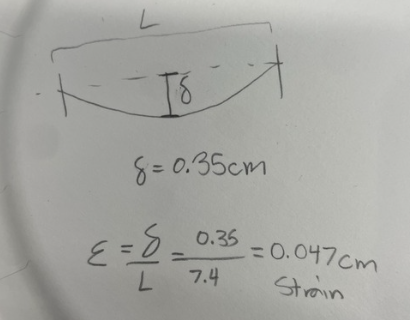 L
δ
δ = 0.35cm
ε = δ/L = 0.35/7.4 = 0.047cm
Strain